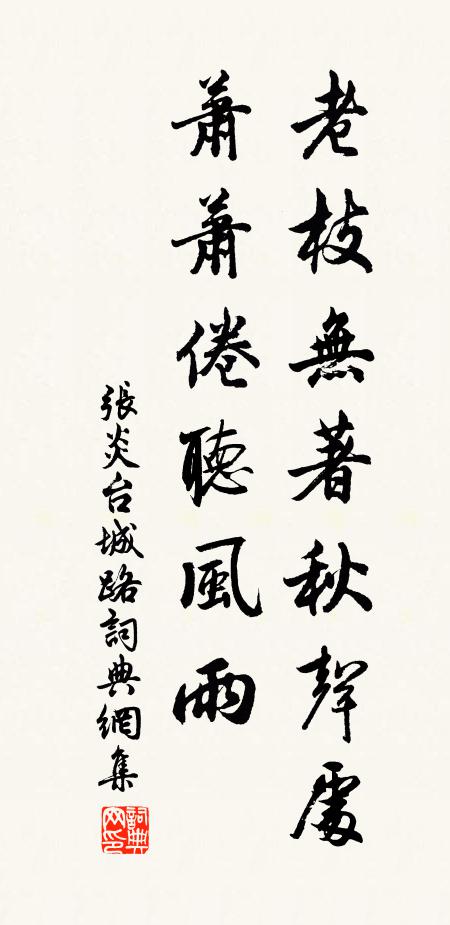 老枝無著秋聲處
蕭蕭倦聽風雨
張炎台城路詞典網集
詞典网印